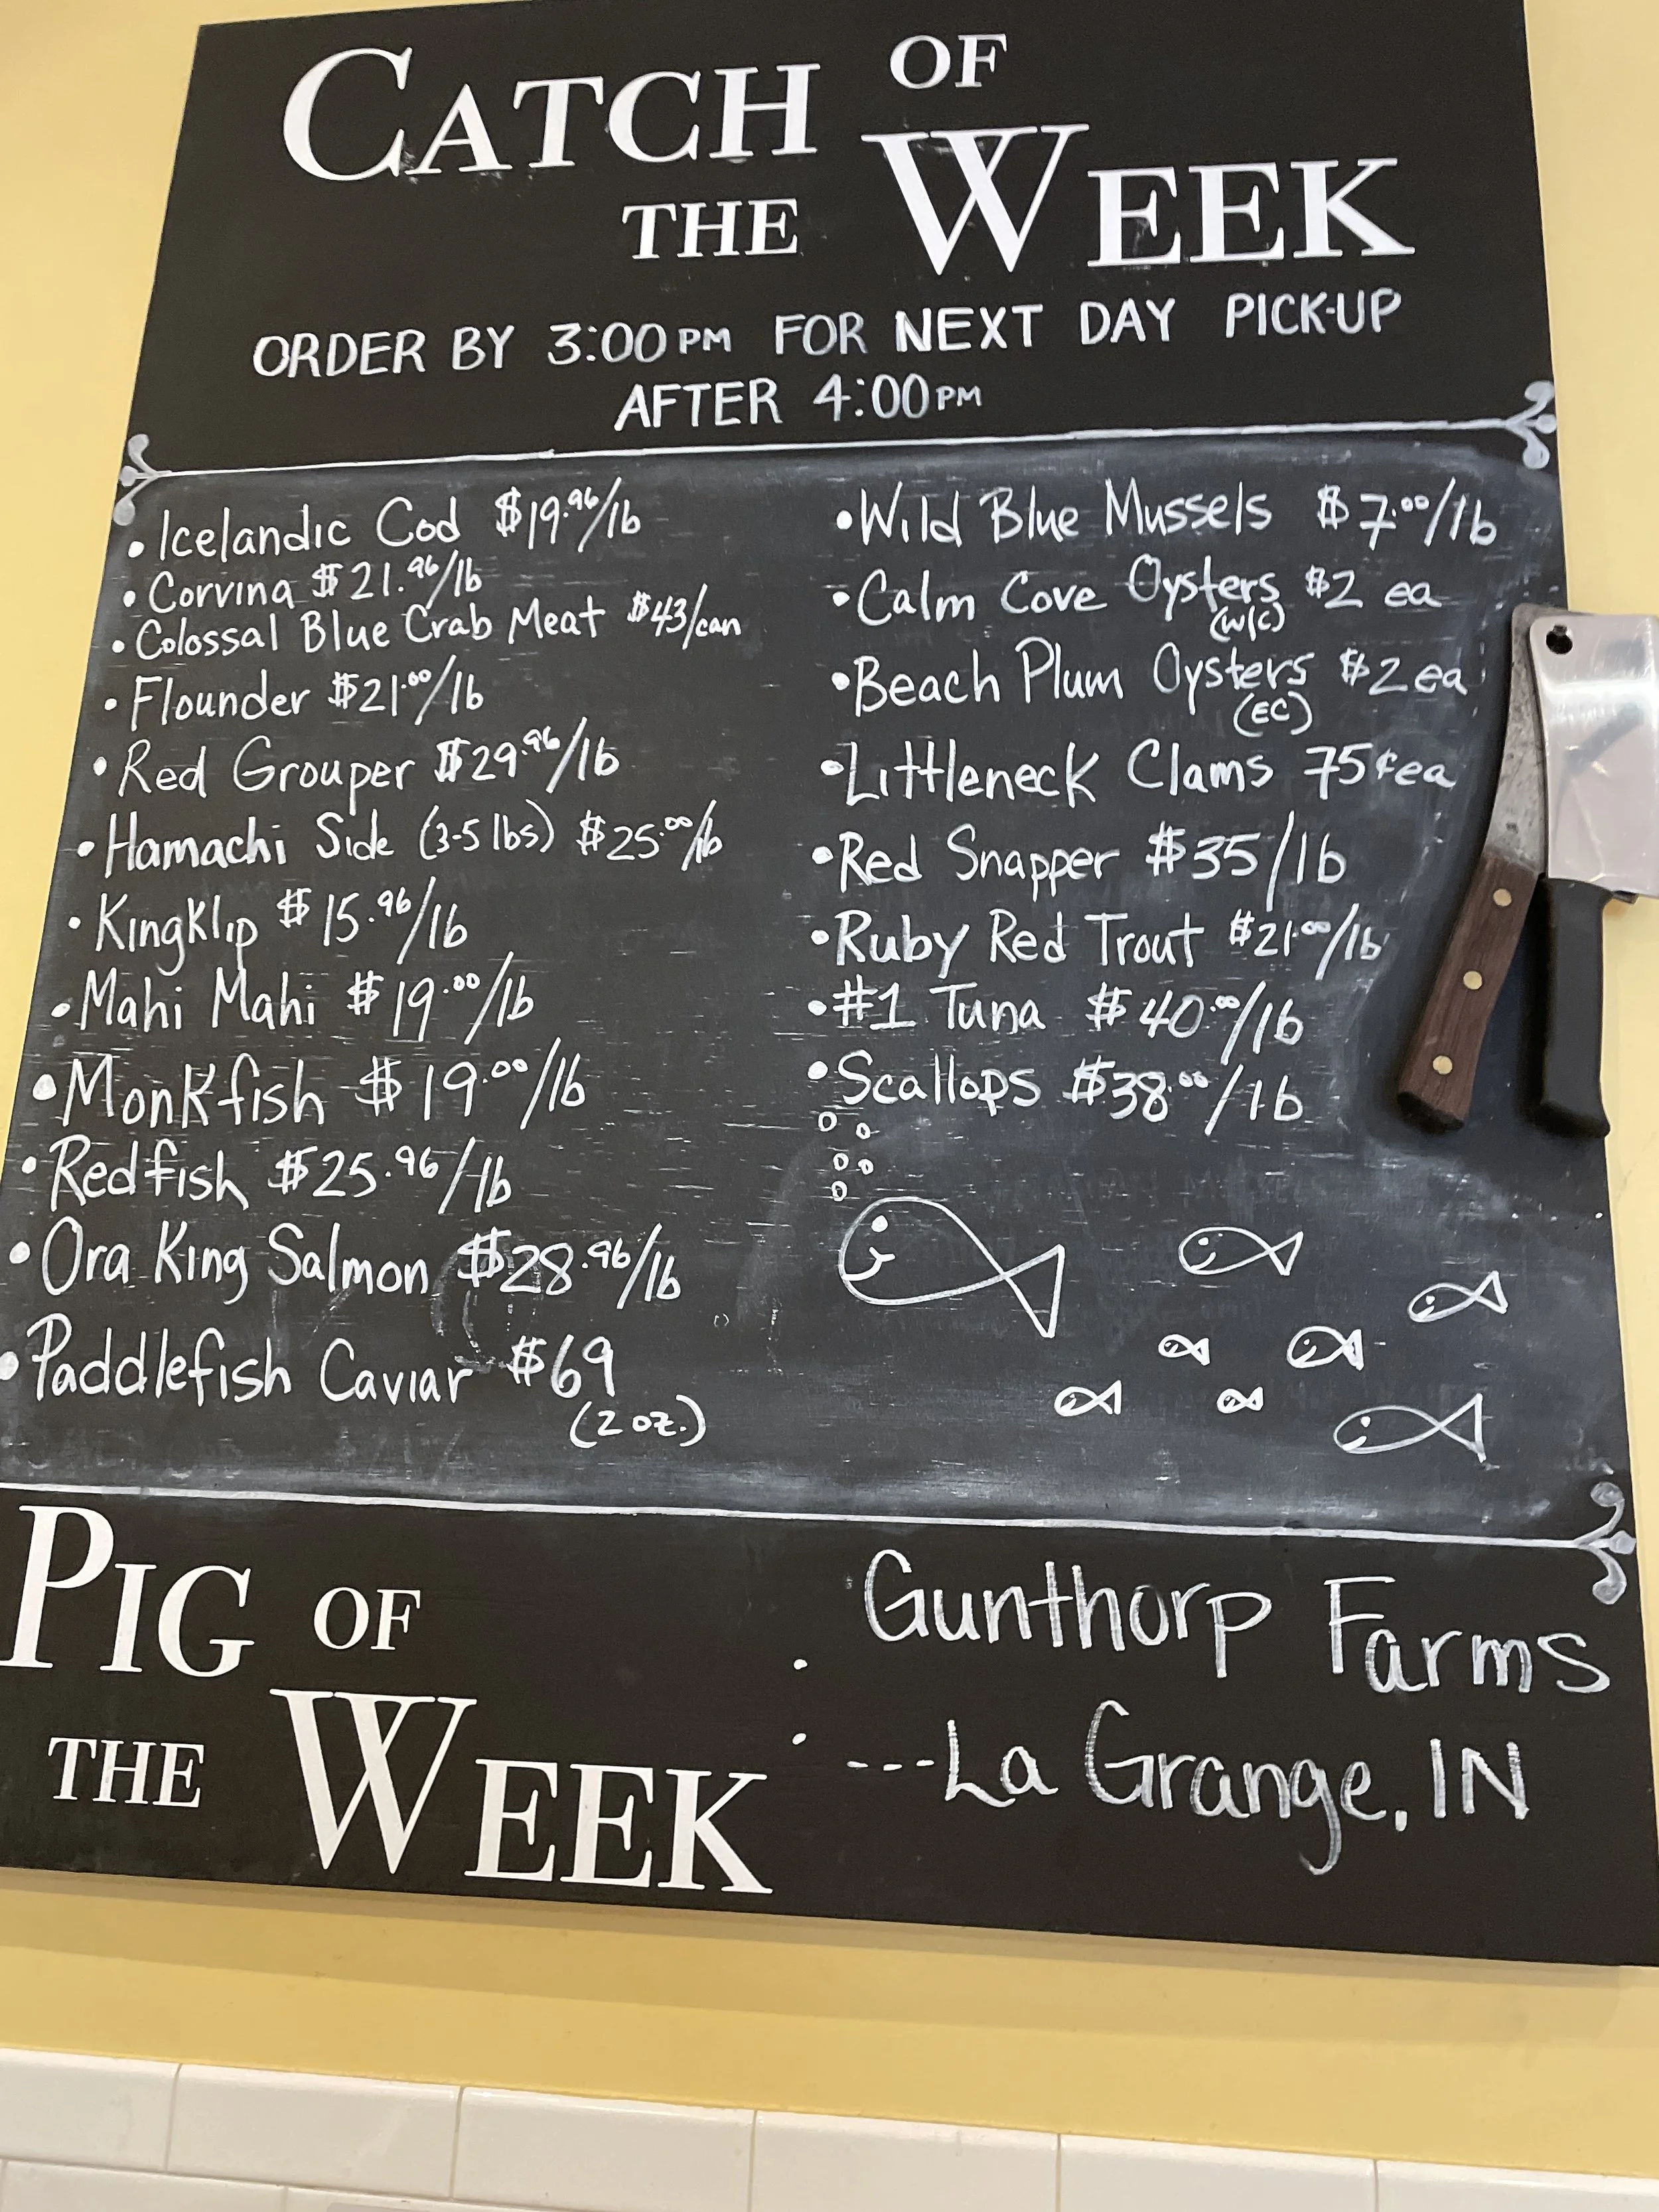 CATCH OF
THE WEEK
ORDER BY 3:00PM FOR NEXT DAY PICK-UP
AFTER 4:00PM
• Icelandic Cod $19.96/lb
• Corvina $21.96/lb
• Colossal Blue Crab Meat $43/can
• Flounder $21.00/lb
• Red Grouper $29.96/lb
• Hamachi Side (3-5 lbs) $25.00/lb
• Kingklip $15.96/lb
• Mahi Mahi $19.00/lb
• Monkfish $19.00/lb
• Redfish $25.96/lb
• Ora King Salmon $28.96/lb
• Paddlefish Caviar $69
(2 oz.)
• Wild Blue Mussels $7.00/lb
• Calm Cove Oysters $2 ea
(W/C)
• Beach Plum Oysters $2 ea
(EC)
• Littleneck Clams 75¢ ea
• Red Snapper $35/lb
• Ruby Red Trout $21.00/lb
• #1 Tuna $40.00/lb
• Scallops $38.00/lb
PIG OF
THE WEEK :
Gunthorp Farms
---La Grange, IN